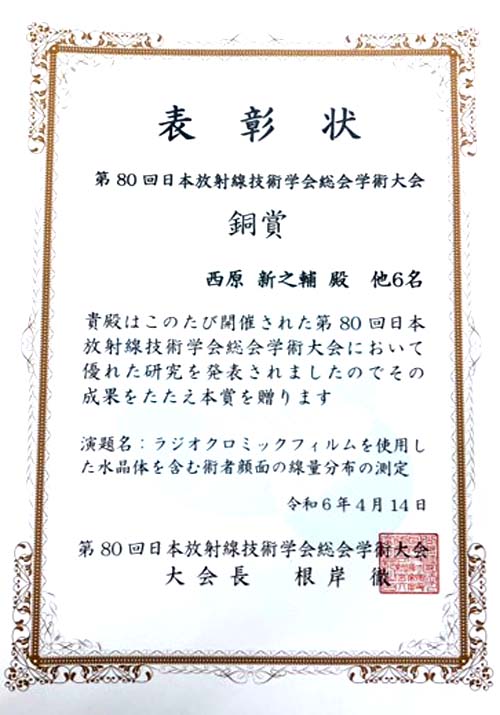 表彰状
第80回日本放射線技術学会総会学術大会
銅賞
西原 新之輔 殿 他6名
貴殿はこのたび開催された第80回日本
放射線技術学会総会学術大会において
優れた研究を発表されましたのでその
成果をたたえ本賞を贈ります
演題名：ラジオクロミックフィルムを使用し
た水晶体を含む術者顔面の線量分布の測定
令和6年4月14日
第80回日本放射線技術学会総会学術大会
大会長 根岸 徹